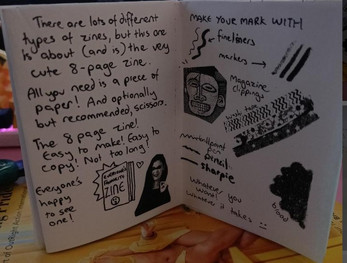 There are lots of different
types of zines, but this one
is about (and is) the very
cute 8-page zine.
All you need is a piece of
paper! And optionally
but recommended, scissors.
The 8 page zine!
Easy to make! Easy to
copy! Not too long!
Everyone's
happy
to see
one!
EVERYONE'S
FAVORITE
ZINE
MAKE YOUR MARK WITH
fineliners
markers
Magazine
clippings
washi tape
ballpoint
pen
pencil
sharpie
Whatever you
want!
Whatever it takes
blood